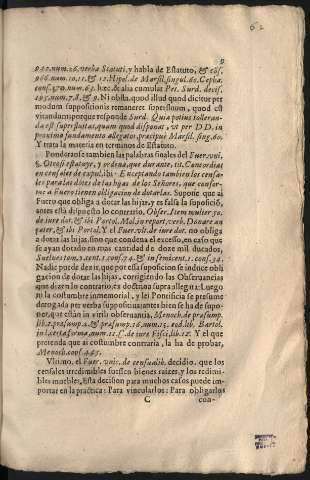 9
num.26. verba Statuti, y habla de Estatuto, & cōs.
966. num. 10. 11. & 12. Hipol. de Marsil. singul. 60. Cepha.
cons. 370. num. 63. hæc, & alia cumulat Pet. Surd. decis.
195. num. 7. 8. & 9. Ni obsta, quod illud quod dicitur per
modum suppositionis remaneret superfluum, quod est
vitandum porque responde Surd. Quia potius tolleran-
da est superfluitas, quam quod disponat, vt per DD. in
proximo fundamento allegatos, præcipuè Marsil. sing. 60.
Y trata la materia en terminos de Estatuto.
Ponderanse tambien las palabras finales del Fuer. vni.
§. Otrosi estatuye, y ordena, que durante, tit. Concordias
en censales de caput, ibi: Exceptando tambien los censa-
les para las dotes de las hijas de los Señores, que confor-
me a Fuero tienen obligacion de dotarlas. Supone que al
Fuero que obliga a dotar las hijas, y es falsa la suposició,
antes està dispuesto lo contrario, Obser. Item mulier 30.
de iure dot. & ibi Portol. Mol. in repert. verb. Donare an
pater, & ibi Portol. Y el Fuer. vlt. de iure dot. no obliga
a dotar las hijas, sino que condena el excesso, en caso que
se ayan dotado en mas cantidad de doze mil ducados,
Suelues tom. 2. cent. 1. cons. 74. & in semicent. 1. cons. 32.
Nadie puede dezir, que por essa suposicion se induce obli
gacion de dotar las hijas, corrigiendo las Observancias
que dizen lo contrario, es doctrina supra allegna: Luego
ni la costumbre inmemorial, y lei Pontificia se presume
derogada por verba suppositiua: antes bien se ha de supo-
ner, que estàn in virili obseruantia, Menoch. de præsump.
lib. 2. præsump. 2. & præsump. 16. num. 15. eod. lib. Bartol.
in l. ex verbis forma, num. 11. C. de iure Fisci, lib. 12. Y el que
pretende que ai costumbre contraria, la ha de probar,
Menoch. cons. 465.
Vltimo, el Fuer. vnic. de censualib. decidiò, que los
censales irredimibles fuessen bienes raizes, y los redimi-
bles muebles, Esta decision para muchos casos puede im-
portar en la practica: Para vincularlos: Para obligarlos
C
con-